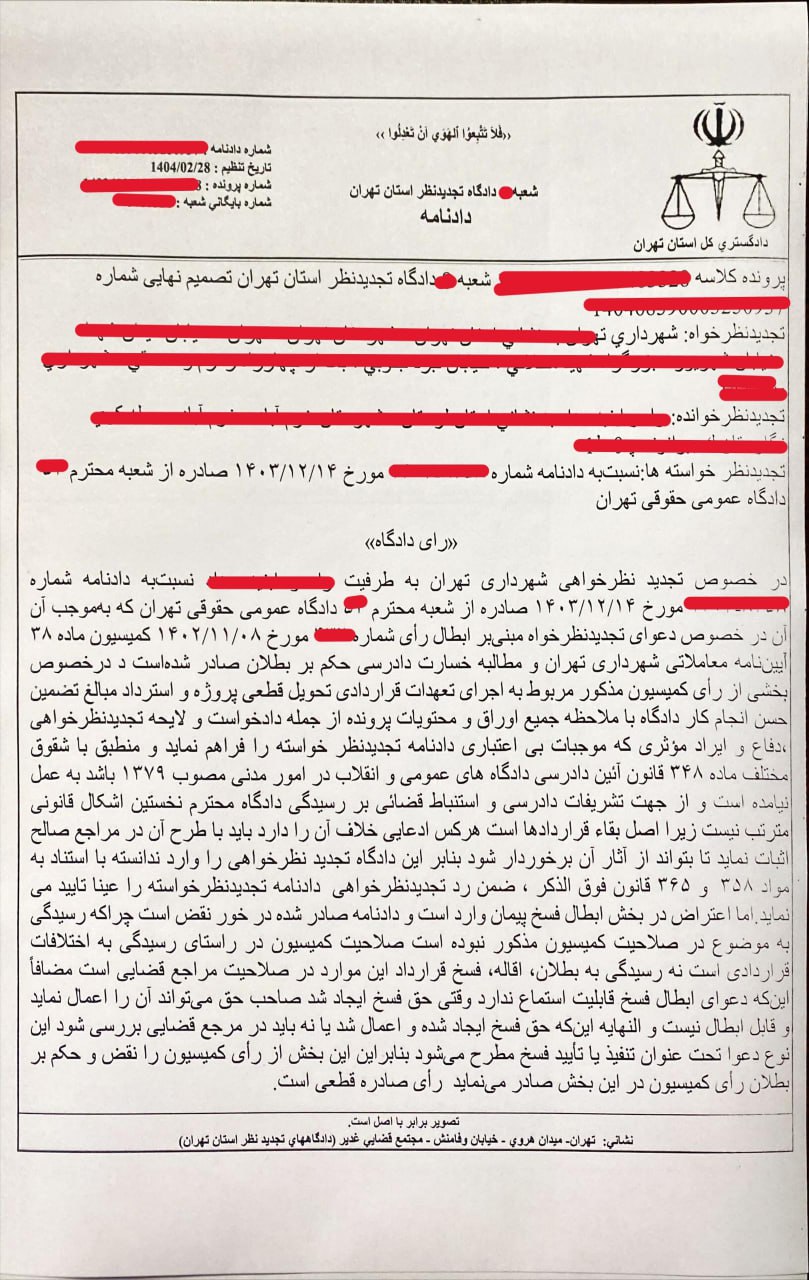 ‹‹فَلاَ تَتَّبِعُوا اَلْهَوي اَنْ تَعْدِلُوا ››
شعبه دادگاه تجدیدنظر استان تهران
دادنامه
دادگستري کل استان تهران
شماره دادنامه :
تاریخ تنظیم : 1404/02/28
شماره پرونده :
شماره بایگاني شعبه :
پرونده کلاسه شعبه دادگاه تجدیدنظر استان تهران تصمیم نهایی شماره
تجدیدنظرخواه: شهرداري
تجدیدنظرخوانده:
تجدیدنظر خواسته ها:نسبت‌به دادنامه شماره مورخ ۱۴۰۳/۱۲/۱۴ صادره از شعبه محترم
دادگاه عمومی حقوقی تهران
«رای دادگاه»
در خصوص تجدید نظرخواهی شهرداری تهران به طرفیت نسبت‌به دادنامه شماره
مورخ ۱۴۰۳/۱۲/۱۴ صادره از شعبه محترم دادگاه عمومی حقوقی تهران که به‌موجب آن
آن در خصوص دعوای تجدیدنظرخواه مبنی‌بر ابطال رأی شماره مورخ ۱۴۰۲/۱۱/۰۸ کمیسیون ماده ۳۸
آیین‌نامه معاملاتی شهرداری تهران و مطالبه خسارت دادرسی حکم بر بطلان صادر شده‌است د درخصوص
بخشی از رأی کمیسیون مذکور مربوط به اجرای تعهدات قراردادی تحویل قطعی پروژه و استرداد مبالغ تضمین
حسن انجام کار دادگاه با ملاحظه جمیع اوراق و محتویات پرونده از جمله دادخواست و لایحه تجدیدنظرخواهی
،دفاع و ایراد مؤثری که موجبات بی اعتباری دادنامه تجدیدنظر خواسته را فراهم نماید و منطبق با شقوق
مختلف ماده ۳۴۸ قانون آئین دادرسی دادگاه های عمومی و انقلاب در امور مدنی مصوب ۱۳۷۹ باشد به عمل
نیامده است و از جهت تشریفات دادرسی و استنباط قضائی بر رسیدگی دادگاه محترم نخستین اشکال قانونی
مترتب نیست زیرا اصل بقاء قراردادها است هرکس ادعایی خلاف آن را دارد باید با طرح آن در مراجع صالح
اثبات نماید تا بتواند از آثار آن برخوردار شود بنابر این دادگاه تجدید نظرخواهی را وارد ندانسته با استناد به
مواد ۳۵۸ و ۳۶۵ قانون فوق الذکر ، ضمن رد تجدیدنظرخواهی دادنامه تجدیدنظرخواسته را عینا تایید می
نماید.اما اعتراض در بخش ابطال فسخ پیمان وارد است و دادنامه صادر شده در خور نقض است چراکه رسیدگی
به موضوع در صلاحیت کمیسیون مذکور نبوده است صلاحیت کمیسیون در راستای رسیدگی به اختلافات
قراردادی است نه رسیدگی به بطلان، اقاله، فسخ قرارداد این موارد در صلاحیت مراجع قضایی است مضافاً
این‌که دعوای ابطال فسخ قابلیت استماع ندارد وقتی حق فسخ ایجاد شد صاحب حق می‌تواند آن را اعمال نماید
و قابل ابطال نیست و النهایه این‌که حق فسخ ایجاد شده و اعمال شد یا نه باید در مرجع قضایی بررسی شود این
نوع دعوا تحت عنوان تنفیذ یا تأیید فسخ مطرح می‌شود بنابراین این بخش از رأی کمیسیون را نقض و حکم بر
بطلان رأی کمیسیون در این بخش صادر می‌نماید رأی صادره قطعی است.
تصویر برابر با اصل است.
نشاني: تهران- میدان هروي - خیابان وفامنش - مجتمع قضایي غدیر (دادگاههاي تجدید نظر استان تهران)